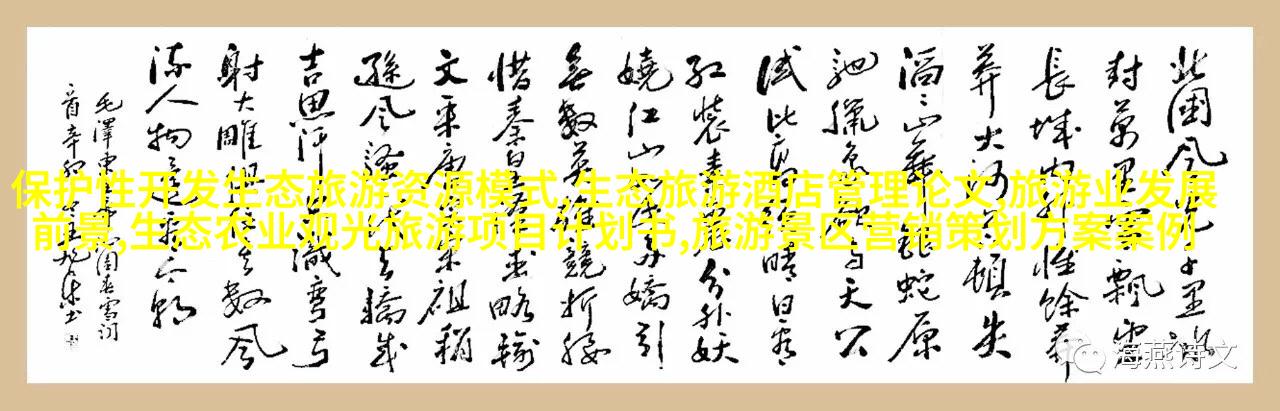 保护性开发生态旅游资源模式,生态旅游酒店管理论文,旅游业发展
前景,生态农业观光旅游项目计划书,旅游景区营销策划方案案例
北国风光千里冰
封萬里雪飄望
長城内外惟餘莽
莽大河上下頓失
滔滔山舞銀蛇原
馳臘象欲与天公
試比高須晴日看
紅裝素裹分外妖
嬈江山如此多嬌引
無數英雄競折腰
惜秦皇漢武略輸
文采唐宗宋祖稍
遜風騷一代天驕成
吉思汗只識彎弓
射大雕俱往矣數風
流人物還看今朝
毛澤東沁園春雪詞
海燕诗文